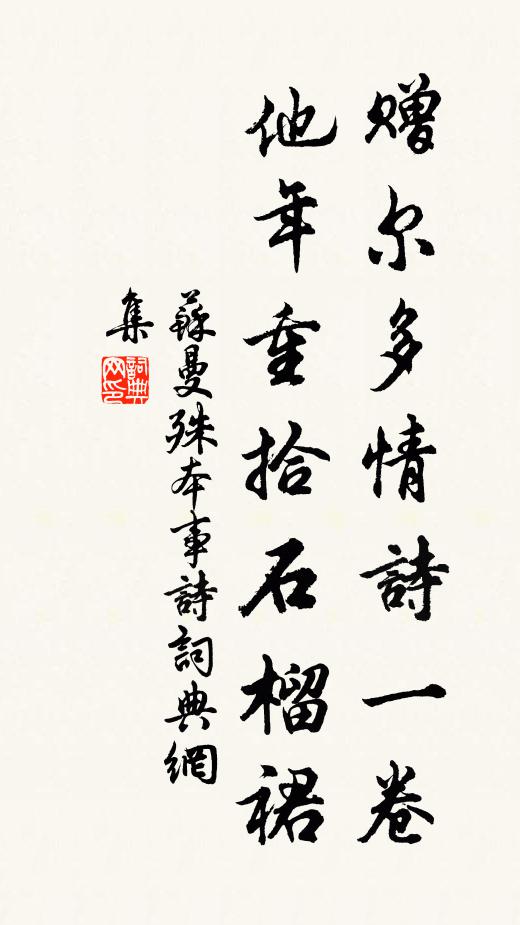 赠尔多情詩一卷
他年重拾石榴裙
蘇曼殊本事詩詞典網
集
詞典網印